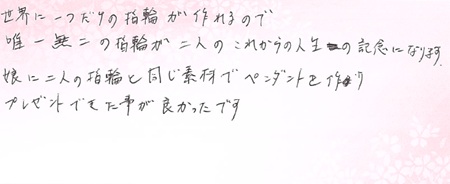 世界に一つだけの指輪が作れるので
唯一無二の指輪が二人のこれからの人生の記念になります。
娘に二人の指輪と同じ素材でペンダントを作り
プレゼントできた事が良かったです